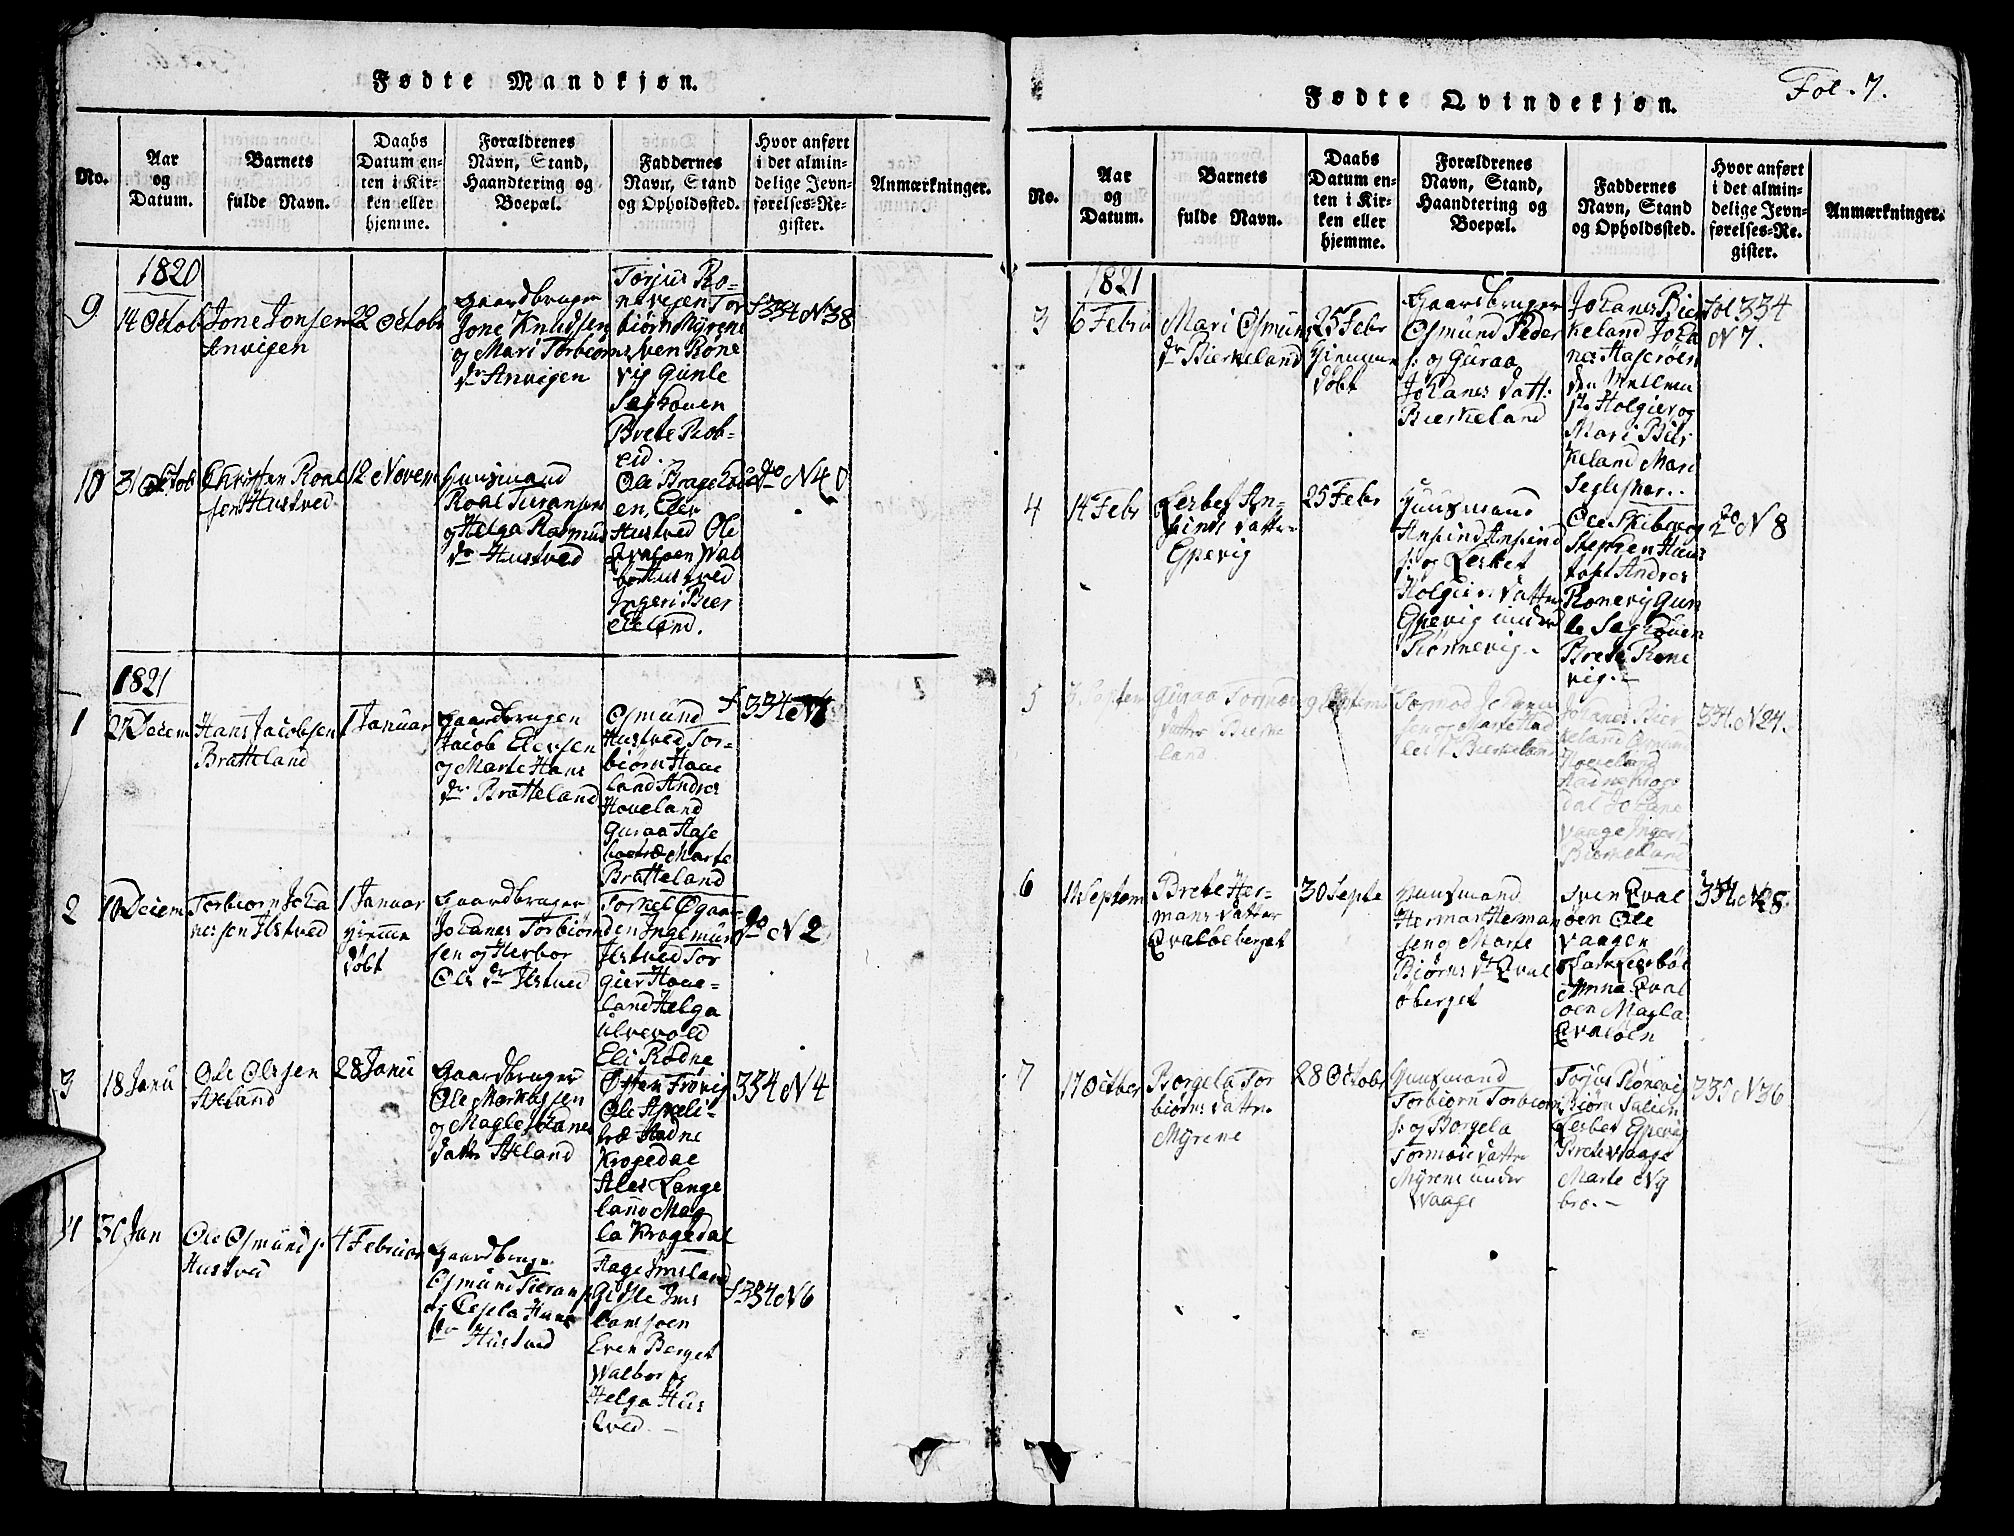 Fødte Mandkjøn.
No.
Aar
og
Datum.
Barnets
fulde Navn.
Daabs
Datum en-
ten i Kir-
ken eller
hjemme.
Forældrenes
Navn, Stand,
Haandtering og
Boepæl.
Faddernes
Navn, Stand
og Opholdssted.
Hvor anført
i det almin-
delige Jevn-
førelses-Re-
gister.
Anmærkninger.
1820
9
14 Octob
Jone Jonsen
Anvigen
22 Octobr
Gaardbruger
Jone Knudsen
og Mari Torbiorns
dr Anvigen
Torjus Ro-
nevigen Tor
biørn Myrene
Sven Rone
vig Gunle
Saghouen
Brete Rob-
eid.
f 334 N 38
10
31 Octob
Christen Roal
sen Hustved
12 Novem
Huusmand
Roal
og Helga Rasmus
dr Hustved
Ole
en, Elev
Hustved Ole
Qvaløen Wal
bor Hustved
Ingeri Bier
keland.
do N 40
1821
1
27 Decem
Hans Jacobsen
Bratteland
1 Januar
Gaardbruger
Jacob Elevsen
og Marte Hans
dr Bratteland
Osmund
Hustved Tor-
biørn Haue
land Andres
Hoveland
Guraa Hase
Marte
Bratteland
f 334 N 1
2
10 Decem
Torbiorn Joha
nessen Ilstved
1 Januar
hiemme
døbt
Gaardbruger
Johanes Torbiørn
sen og Herbor
Ols dr Ilstved
Torkel Øgaar-
den Ingemund
Ilstved Tor
gier Hove-
land Helga
Ulvevold
Eli Rødne
do N 2
3
18 Janu
Ole Olsen
Axeland
28 Janu
Gaardbruger
Ole
og Magle Johanes
datter Axeland
Østen Frøvig
Ole
træ Aadne
Krogedal
Ales Lange
land Mag
la Krogedal
334 N 4
4
30 Jan
Ole Osmunds
Hustved
4 Februar
Gaardbruger
Osmund
og Hans
dr Hustved
Aage Imsland
Gidsle Ims
landsoen
Even Berget
Walbor og
Helga Hus
tved.
f 334 N 6
Fol. 7.
Fødte Qvindekjøn.
No.
Aar
og
Datum.
Barnets
fulde Navn.
Daabs
Datum en-
ten i Kir-
ken eller
hjemme.
Forældrenes
Navn, Stand,
Haandtering og
Boepæl.
Faddernes
Navn, Stand
og Opholdssted.
Hvor anført
i det almin-
delige Jevn-
førelses-Re-
gister.
Anmærkninger.
1821
3
6 Febru
Mari Osmuns
dr Bierkeland
25 Febr
hiemme
døbt
Gaardbruger
Osmund Peder
s: og Guraa
Johanes datt:
Bierkeland
Johanes Bier
keland Joha
nes
Holgier og
Mari Bier
keland Mari
fol 334
N 7.
4
14 Febr
Lisbet An-
finds datter
Gpevig
25 Febr
Huusmand
Anfind Anfind
s: og Lisbet
Holgiers datter
Gpevig under
Rønnevig.
Ole Skibevog
Stephen Haus
toft Andres
Ronevig Gun
le Saghouen
Brete Rone
vig.
do N 8
5
Septem
Guraa Tormo
datter Bierke
land
9 Septemb
Tormod Johane
sen og Marte
Bierkeland
Johanes Bier
keland
Hoveland
Aadne Krage
dal Johane
Vaage Ingeri
Bierkeland
334 N 24.
6
14 Septem
Brete Her-
mans datter
Qvaløeberget
30 Septe
Huusmand
Herman Herman
sen og Marte
Biørns dr Qval
øberget
Sven Qval
øen Ole
Vaagen
Anna Qval
øen Magla
Qvaløen
334 N 28.
7
17 Octber
Borgela Tor
biørns datter
Myrene
28 Octobr
Huusmand
Torbiorn Torbiorn
s: og Borgela
Tormods datter
Myrene under
Vaage
Torjus Rønevig
Biørn
Lisbet Gpevig
Brete Vaage
Marte Ny
bro.
335 N 36